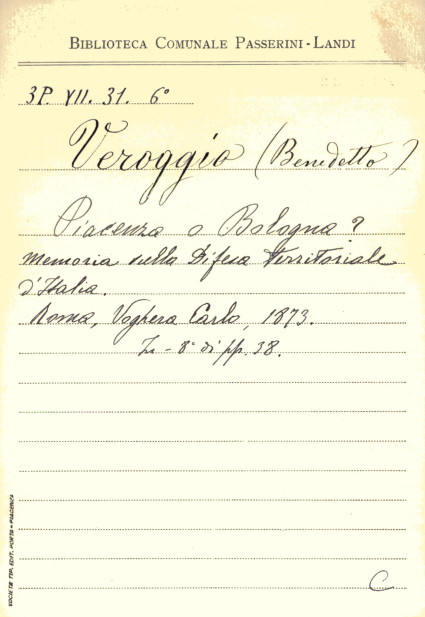 BIBLIOTECA COMUNALE PASSERINI-LANDI
3P. VII. 31. 6°
Veroggio (Benedetto)
Piacenza o Bologna?
Memoria sulla Difesa Territoriale
d'Italia.
Roma, Voghera Carlo, 1873.
In-8° di pp. 38.
C
SOCIETÀ TIP. EDIT. PORTA - PIACENZA